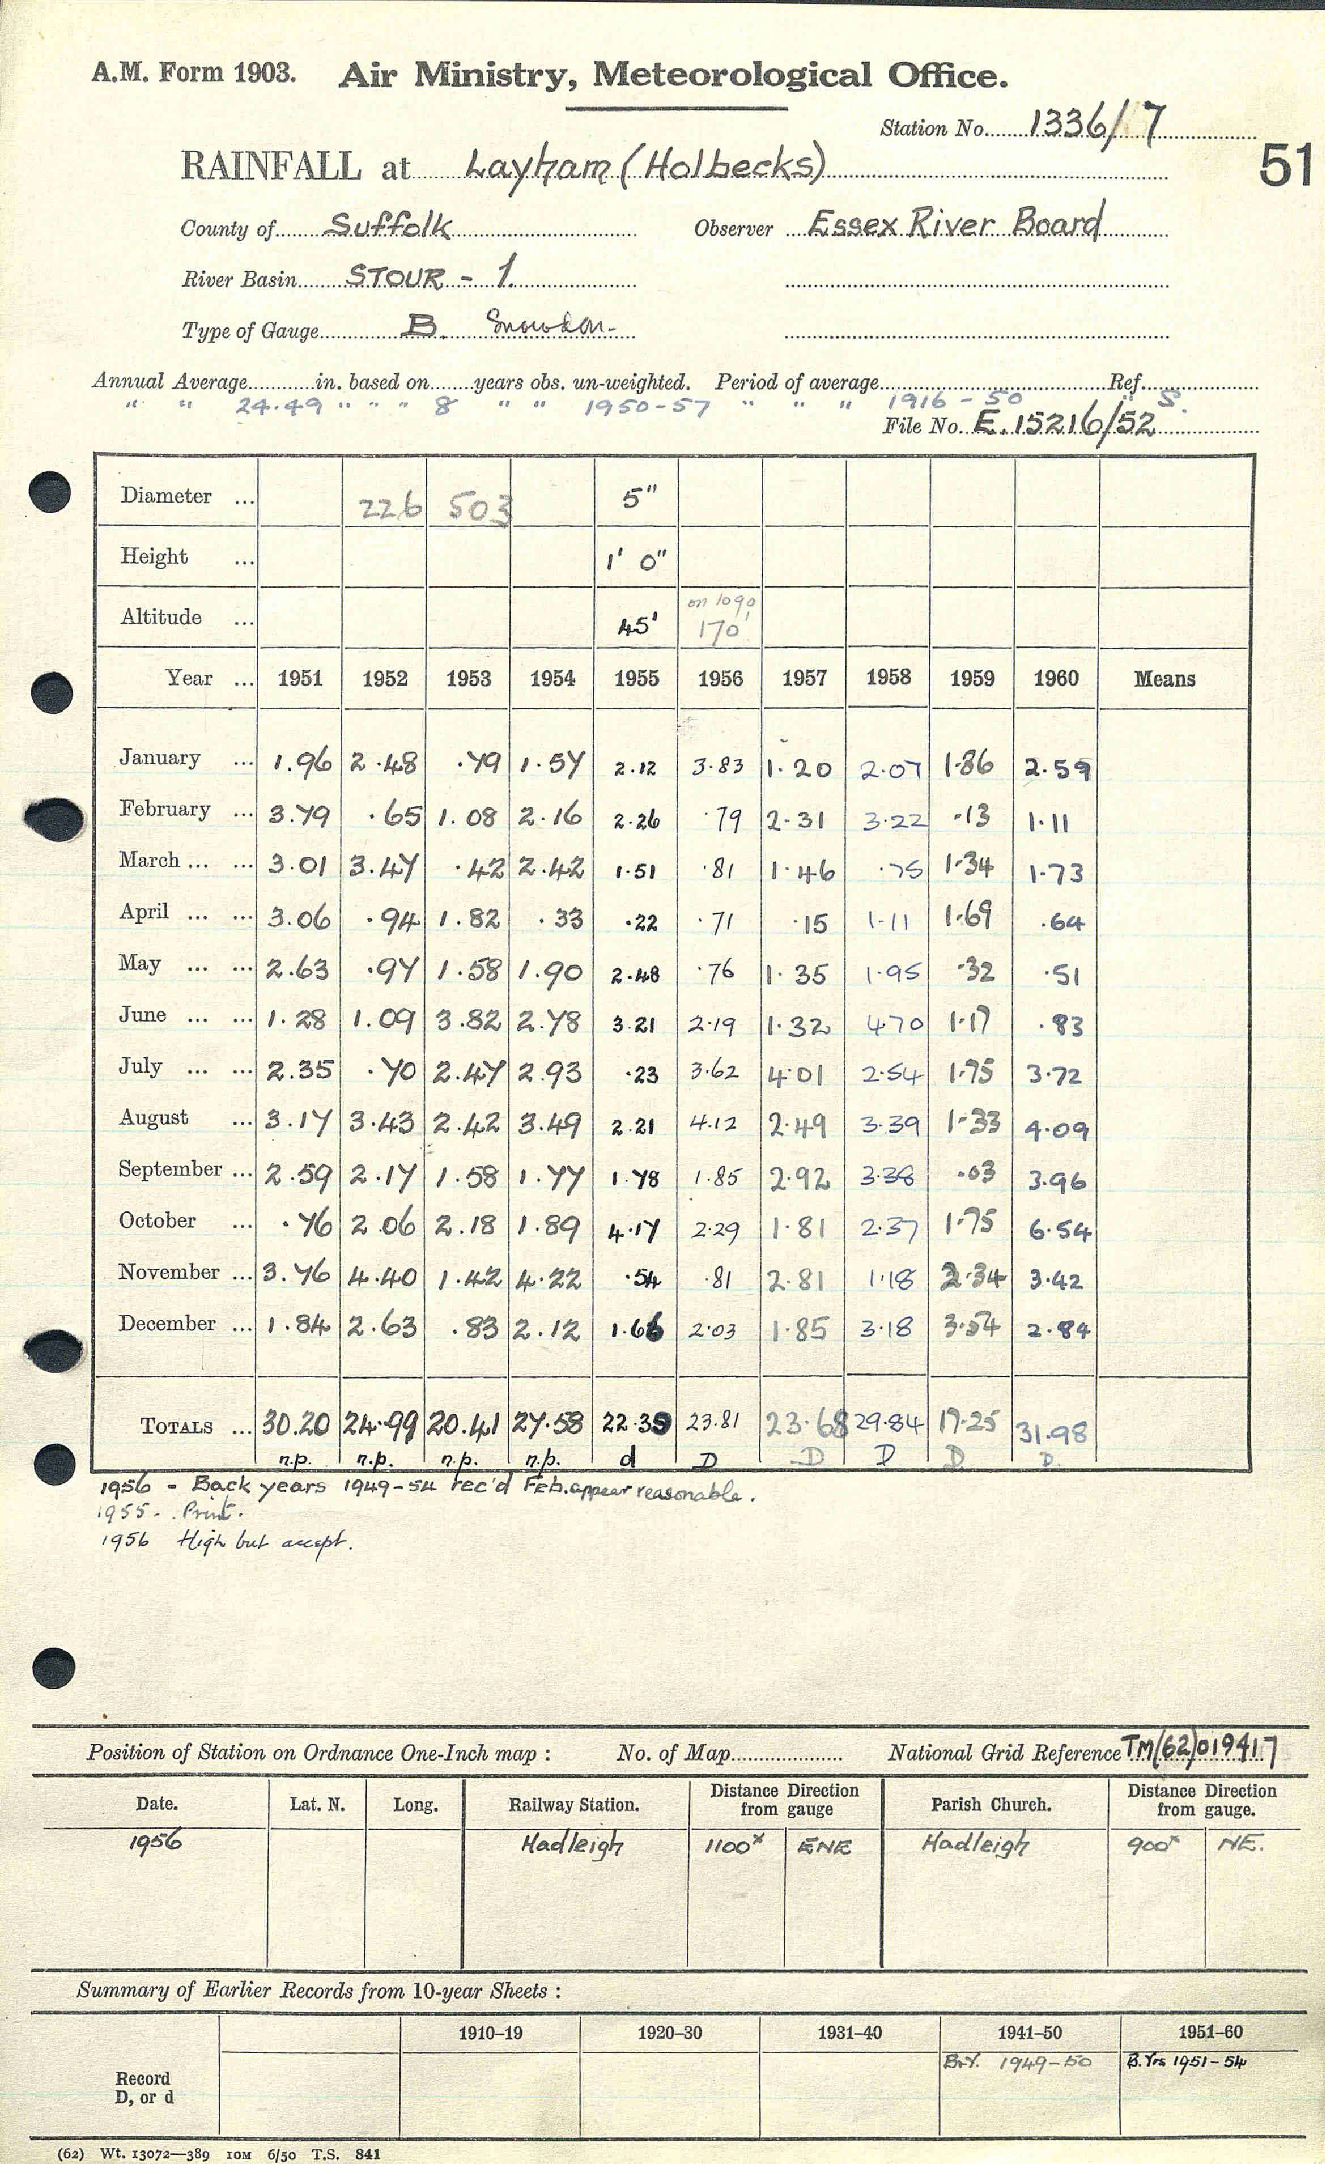 A.M. Form 1903. Air Ministry, Meteorological Office.
Station No. 1336/17
51
RAINFALL at Layham (Holbecks)
County of Suffolk Observer Essex River Board
River Basin STOUR - 1.
Type of Gauge B. Snowdon.
Annual Average in. based on years obs. un-weighted. Period of average Ref.
" " 24.49 " " " 8 " " 1950-57 " " " 1916-50 " S.
File No. E.15216/52
Diameter ... 226 503 5"
Height ... 1' 0"
on 1090
Altitude ... 45' 170'
Year ... 1951 1952 1953 1954 1955 1956 1957 1958 1959 1960 Means
January ... 1.96 2.48 .79 1.57 2.12 3.83 1.20 2.07 1.86 2.59
February ... 3.79 .65 1.08 2.16 2.26 .79 2.31 3.22 .13 1.11
March ... ... 3.01 3.47 .42 2.42 1.51 .81 1.46 .75 1.34 1.73
April ... ... 3.06 .94 1.82 .33 .22 .71 .15 1.11 1.69 .64
May ... ... 2.63 .97 1.58 1.90 2.48 .76 1.35 1.95 .32 .51
June ... ... 1.28 1.09 3.82 2.78 3.21 2.19 1.32 4.70 1.17 .83
July ... ... 2.35 .70 2.47 2.93 .23 3.62 4.01 2.54 1.75 3.72
August ... 3.17 3.43 2.42 3.49 2.21 4.12 2.49 3.39 1.33 4.09
September ... 2.59 2.17 1.58 1.77 1.78 1.85 2.92 3.38 .03 3.96
October ... .76 2.06 2.18 1.89 4.17 2.29 1.81 2.37 1.75 6.54
November ... 3.76 4.40 1.42 4.22 .54 .81 2.81 1.18 2.34 3.42
December ... 1.84 2.63 .83 2.12 1.66 2.03 1.85 3.18 3.54 2.84
TOTALS ... 30.20 24.99 20.41 27.58 22.39 23.81 23.68 29.84 17.25 31.98
n.p. n.p. n.p. n.p. d D D D D D
1956 - Back years 1949-54 rec'd Feb. appear reasonable.
1955 - Print.
1956 High but accept.
Position of Station on Ordnance One-Inch map : No. of Map National Grid Reference TM(62)019417
Date. Lat. N. Long. Railway Station. Distance Direction from gauge Parish Church. Distance Direction from gauge.
1956 Hadleigh 1100ˣ ENE Hadleigh 900ˣ NE.
Summary of Earlier Records from 10-year Sheets :
1910–19 1920–30 1931–40 1941–50 1951–60
B.Y. 1949-50 B.Yrs 1951-54
Record
D, or d
(62) Wt. 13072—389 10M 6/50 T.S. 841